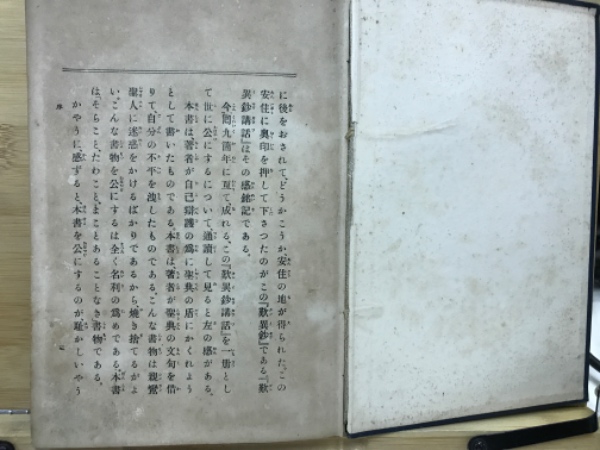 に後をおされて、どうかこうか、安住の地が得られた。この
安住に奥印を押して下さつたのがこの『歎異鈔』である。『歎
異鈔講話』はその感銘記である。
今、同九箇年に亙て、成れる、この『歎異鈔講話』を一冊とし
て世に公にするについて通讀して見ると左の感がある。
本書は著者が自己辯護の爲に聖典の盾にかくれよう
として書いたものである。本書は著者が聖典の文句を借
りて、自分の不平を洩したものである。こんな書物は親鸞
聖人に迷惑をかけるばかりであるから、燒き捨てるがよ
い。こんな書物を公にするは全く名利の爲めである。本書
は、そらごと、たわごと、まことあることなき書物である。
かやうに、感ずると、本書を公にするのが、耻かしいやう
序